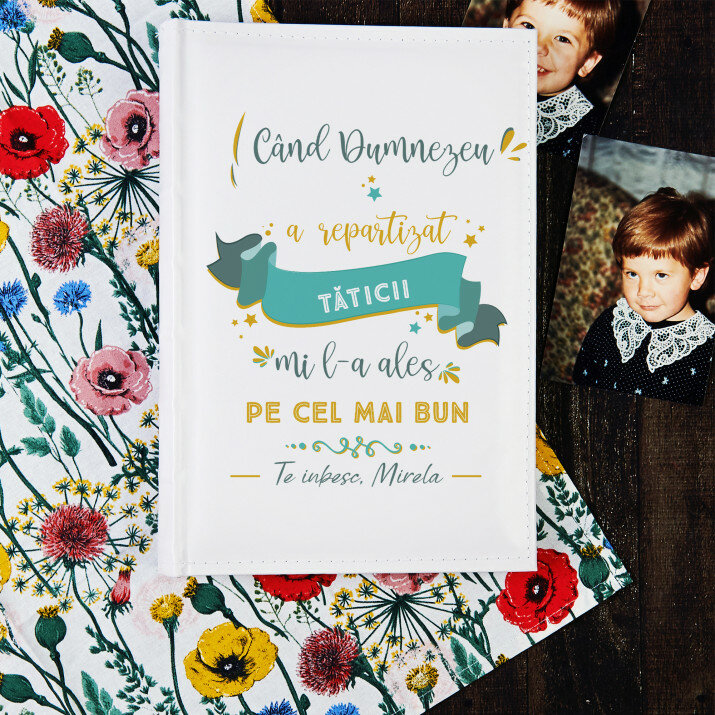 Când Dumnezeu
a repartizat
TĂTICII
mi l-a ales
PE CEL MAI BUN
Te inbesc, Mirela